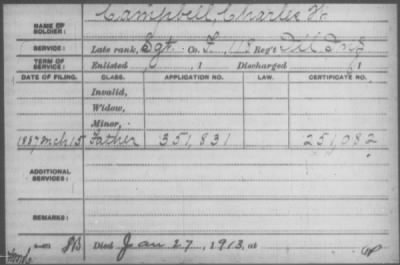 NAME OF SOLDIER: Campbell, Charles W.
SERVICE: Late rank, Sgt Co. F, 118 Reg't Ill Inf
TERM OF SERVICE: Enlisted , 1 Discharged , 1
DATE OF FILING. CLASS. APPLICATION NO. LAW. CERTIFICATE NO.
Invalid,
Widow,
Minor,
1887 Mch 15 Father 351,831 251,082
ADDITIONAL SERVICES:
REMARKS:
Died Jan 27, 1913, at